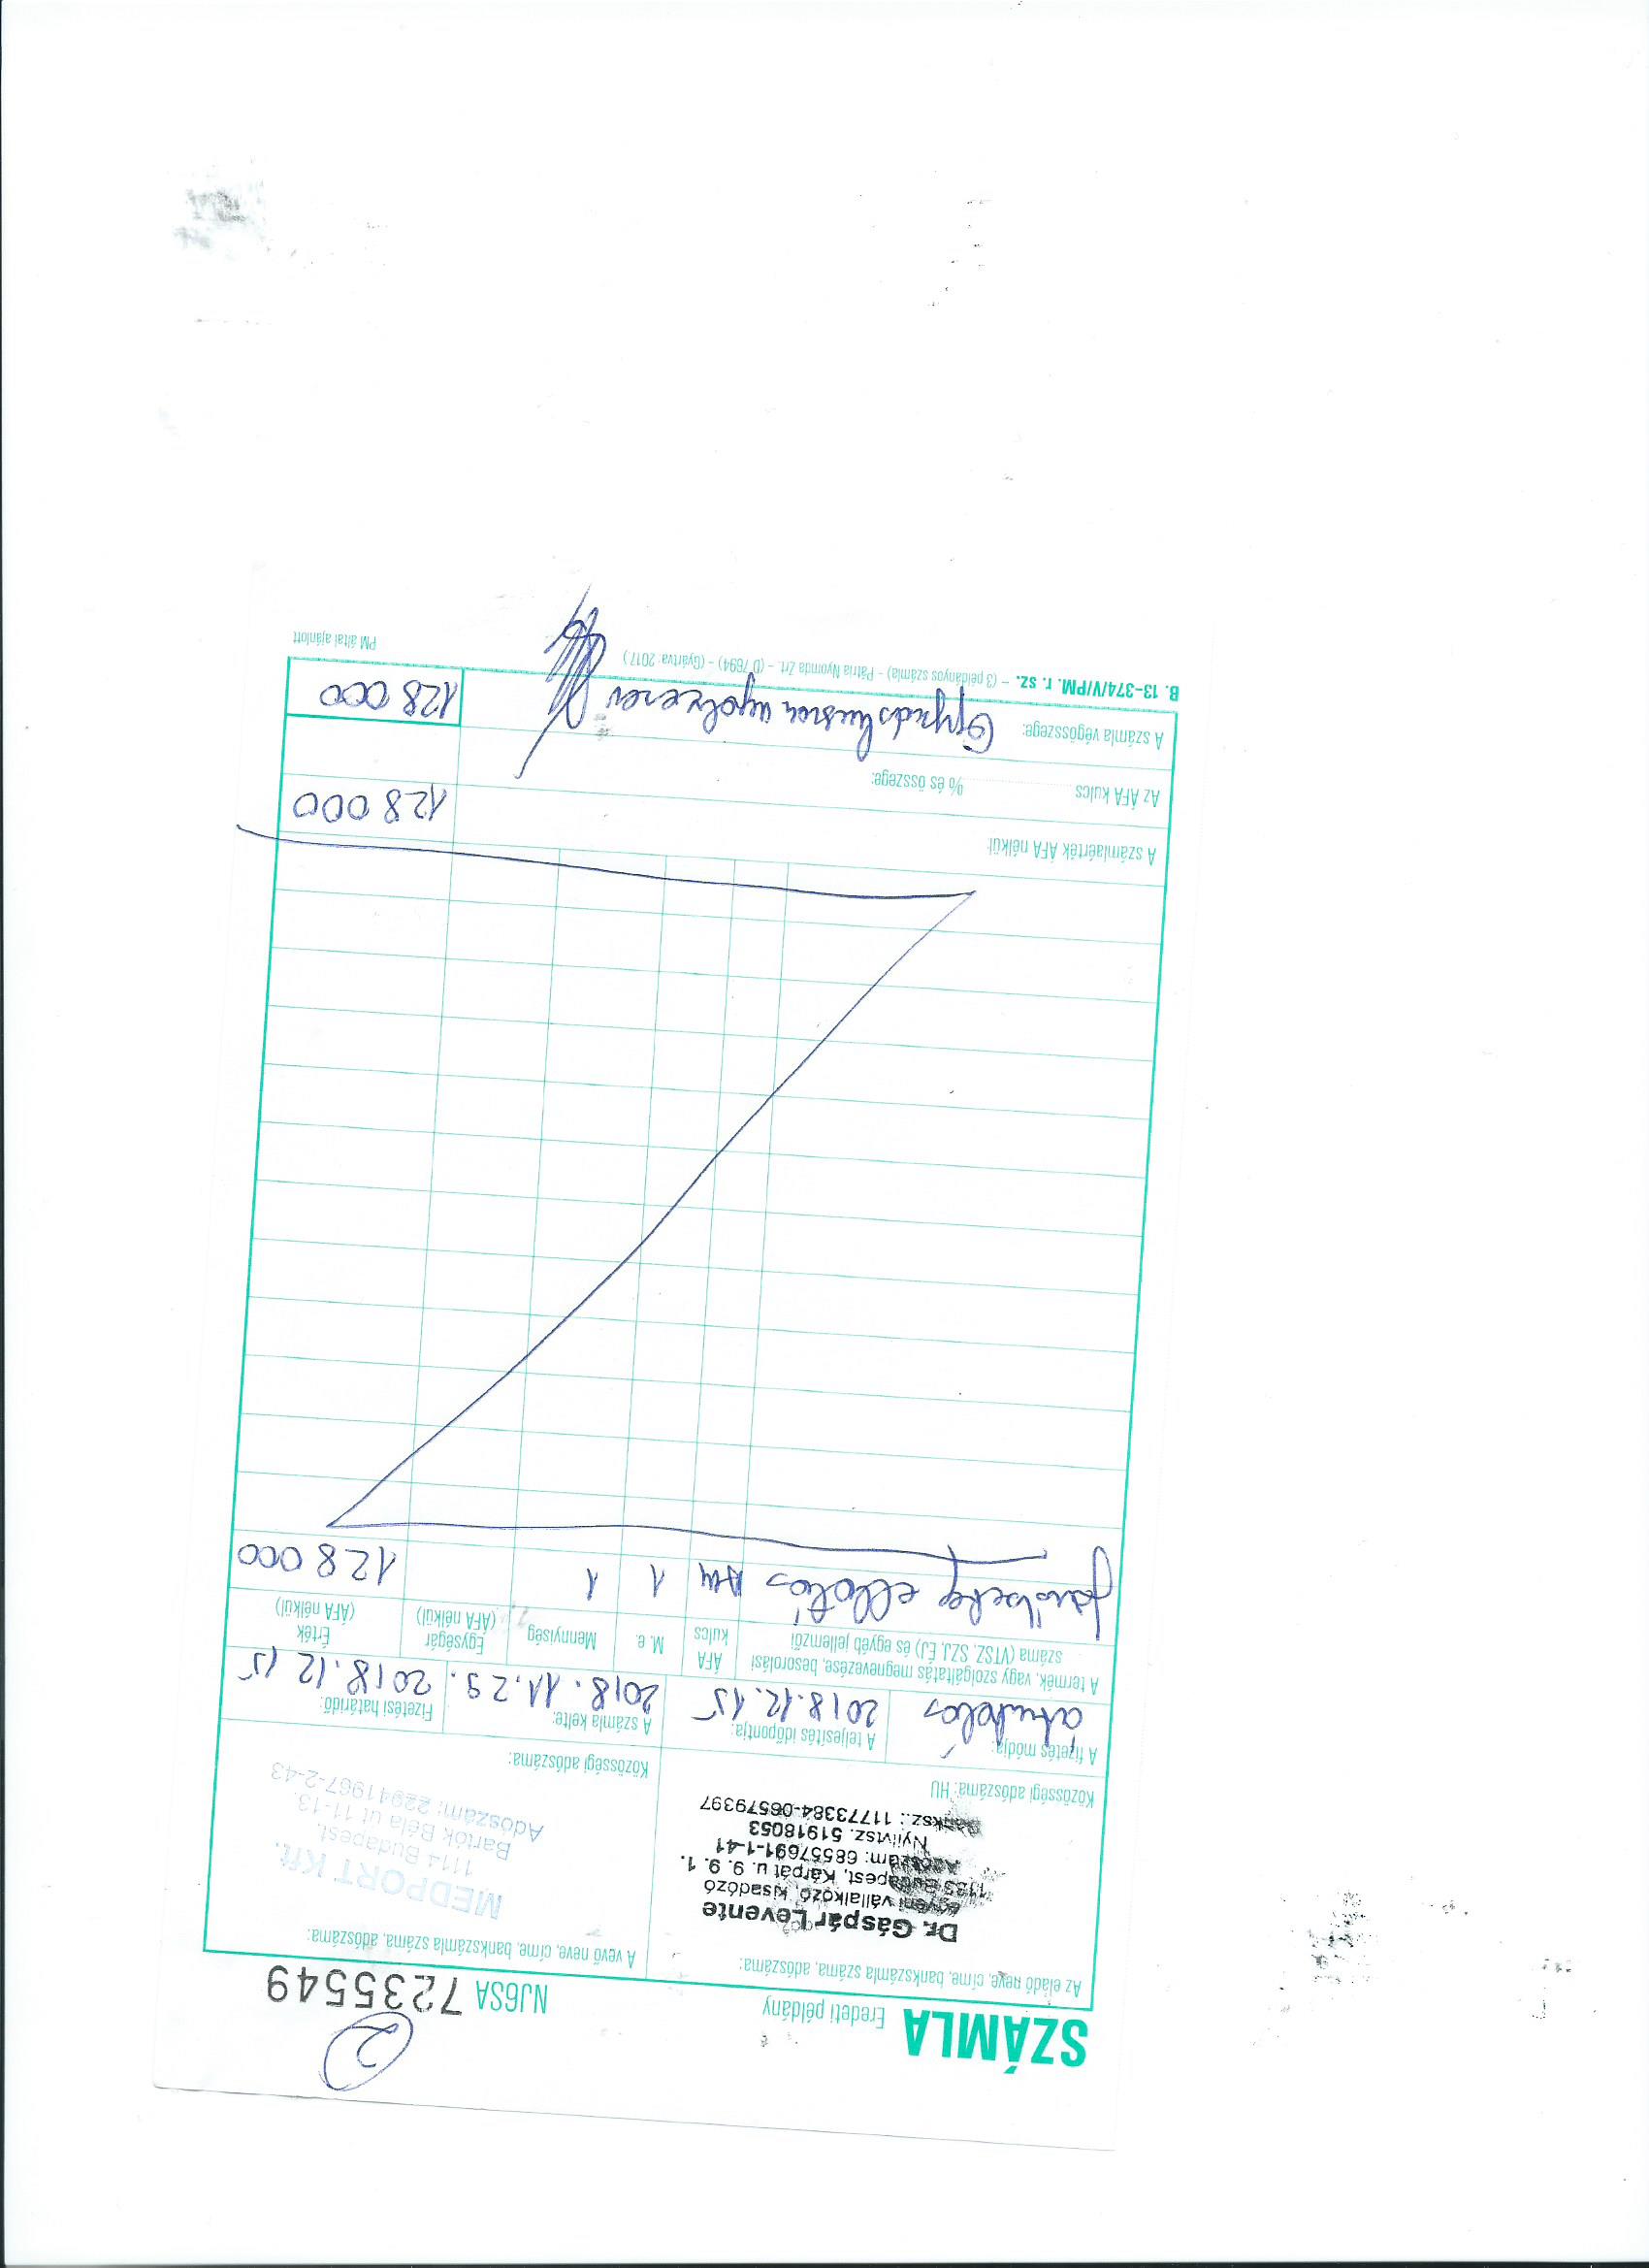 2
SZÁMLA Eredeti példány NJ6SA 7235549
Az eladó neve, címe, bankszámla száma, adószáma:
Dr. Gáspár Levente
egyéni vállalkozó, kisadózó
1133 Budapest, Kárpát u. 9. 9. 1.
Adószám: 68557691-1-41
Nyilv.sz. 51918053
Banksz.: 11773384-06579397
Közösségi adószáma: HU
A vevő neve, címe, bankszámla száma, adószáma:
MEDPORT Kft.
1114 Budapest,
Bartók Béla út 11-13.
Adószám: 22941967-2-43
Közösségi adószáma:
A fizetés módja: átutalás
A teljesítés időpontja: 2018.12.15
A számla kelte: 2018.11.29.
Fizetési határidő: 2018.12 15
A termék, vagy szolgáltatás megnevezése, besorolási száma (VTSZ, SZJ, ÉJ) és egyéb jellemzői
ÁFA kulcs
M. e.
Mennyiség
Egységár (ÁFA nélkül)
Érték (ÁFA nélkül)
járóbeteg ellátás 1 1 128 000
A számlaérték ÁFA nélkül: 128 000
Az ÁFA kulcs % és összege:
A számla végösszege: 128 000
B. 13-374/V/PM. r. sz. – (3 példányos számla) – Pátria Nyomda Zrt. – (D 7694) – (Gyártva: 2017)
PM által ajánlott